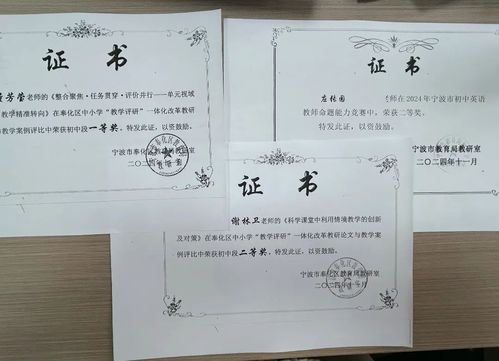 证 书
芳莹老师的《整合聚焦·任务贯穿·评价并行——单元视域
教学精准转向》在奉化区中小学“教学评研”一体化改革教研
与教学案例评比中荣获初中段一等奖。特发此证，以资鼓励。
宁波市奉化区教
二〇二
证 书
老师在2024年宁波市初中英语
教师命题能力竞赛中，荣获二等奖。
特发此证，以资鼓励。
宁波市教育局教研室
二〇二四年十一月
证 书
谢林卫老师的《科学课堂中利用情境教学的创新
及对策》在奉化区中小学“教学评研”一体化改革教研论文与教学案
例评比中荣获初中段二等奖。特发此证，以资鼓励。
宁波市奉化区教育局教研室
二〇二四年十一月